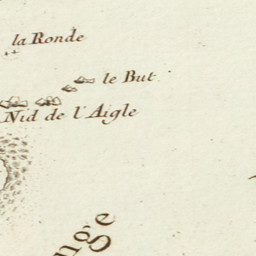 la Ronde
le But
Nid de l'Aigle
nge